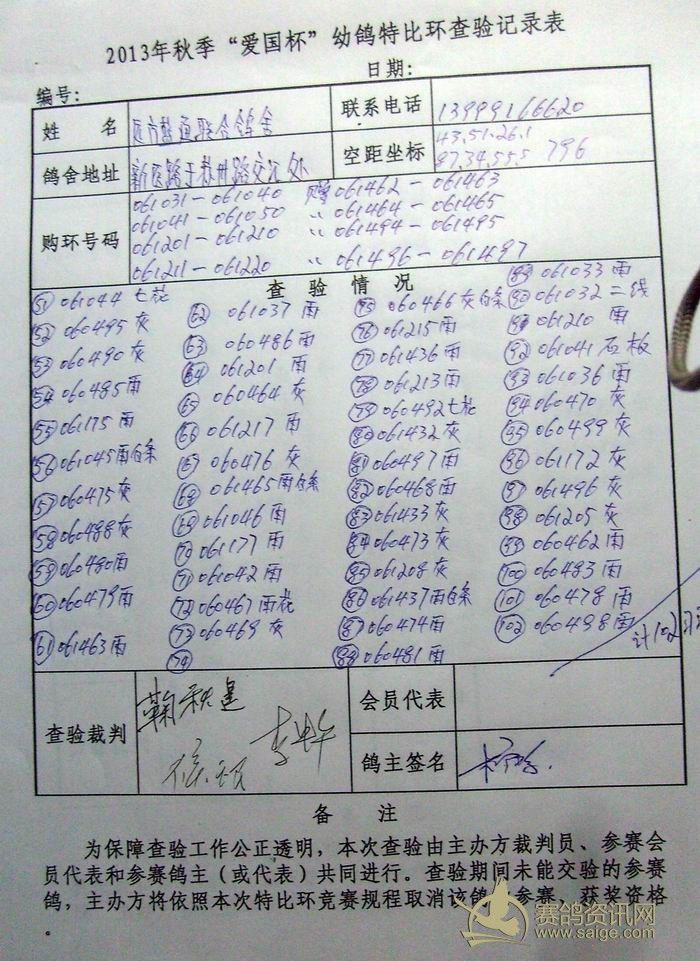 2013年秋季“爱国杯”幼鸽特比环查验记录表
编号: 日期:
姓 名 远方 联合鸽舍 联系电话 13999166620
鸽舍地址 新医路于苏州路交汇处 空距坐标 43.51.26.1 87.34.55.5 796
购环号码 061031-061040 赠061462-061463
061041-061050 〃 061464-061465
061201-061210 〃 061494-061495
061211-061220 〃 061496-061497
查 验 情 况
51 061044 七花
52 060495 灰
53 060490 灰
54 060485 雨
55 061175 雨
56 061045 雨白条
57 060475 灰
58 060488 灰
59 060480 雨
60 060479 雨
61 061463 雨
62 061037 雨
63 060486 雨
64 061201 雨
65 060464 灰
66 061217 雨
67 060476 灰
68 061465 雨白条
69 061046 雨
70 061177 雨
71 061042 雨
72 060467 雨花
73 060469 灰
74
75 060466 灰白条
76 061215 雨
77 061436 雨
78 061213 雨
79 060492 七花
80 061432 灰
81 060497 雨
82 060468 雨
83 061433 灰
84 060473 灰
85 061208 灰
86 061437 雨白条
87 060474 雨
88 060481 雨
89 061033 雨
90 061032 二线
91 061210 雨
92 061041 石板
93 061036 雨
94 060470 灰
95 060499 灰
96 061172 灰
97 061496 灰
98 061205 灰
99 060462 雨
100 060483 雨
101 060478 雨
102 060498 雨
计102羽
查验裁判 会员代表
鸽主签名
备 注
为保障查验工作公正透明，本次查验由主办方裁判员、参赛会
员代表和参赛鸽主（或代表）共同进行。查验期间未能交验的参赛
鸽，主办方将依照本次特比环竞赛规程取消该鸽 参赛、获奖资格
。
赛鸽资讯网
www.saige.com